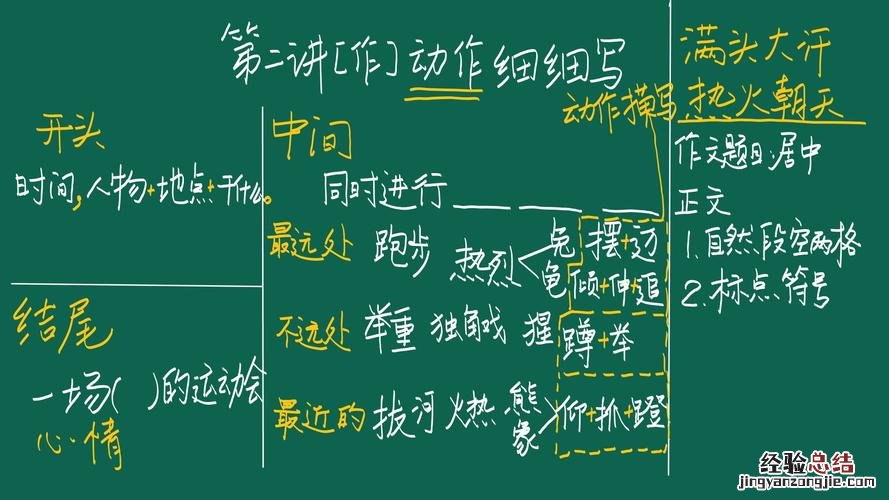 第二讲[作]动作细细写
开头
时间,人物+地点+干什么。
结尾
一场( )的运动会
心情
中间
同时进行
最远处 跑步 热烈 兔 摆+迈
龟 倾+伸+追
不远处 举重 独角戏 猩 蹲+举
最近的 拔河 火热 熊 仰+抓+蹬
象
动作摸写
满头大汗
热火朝天
作文题目:居中
正文
1.自然段空两格
2.标点符号
经验总结
jingyanzongjie.com